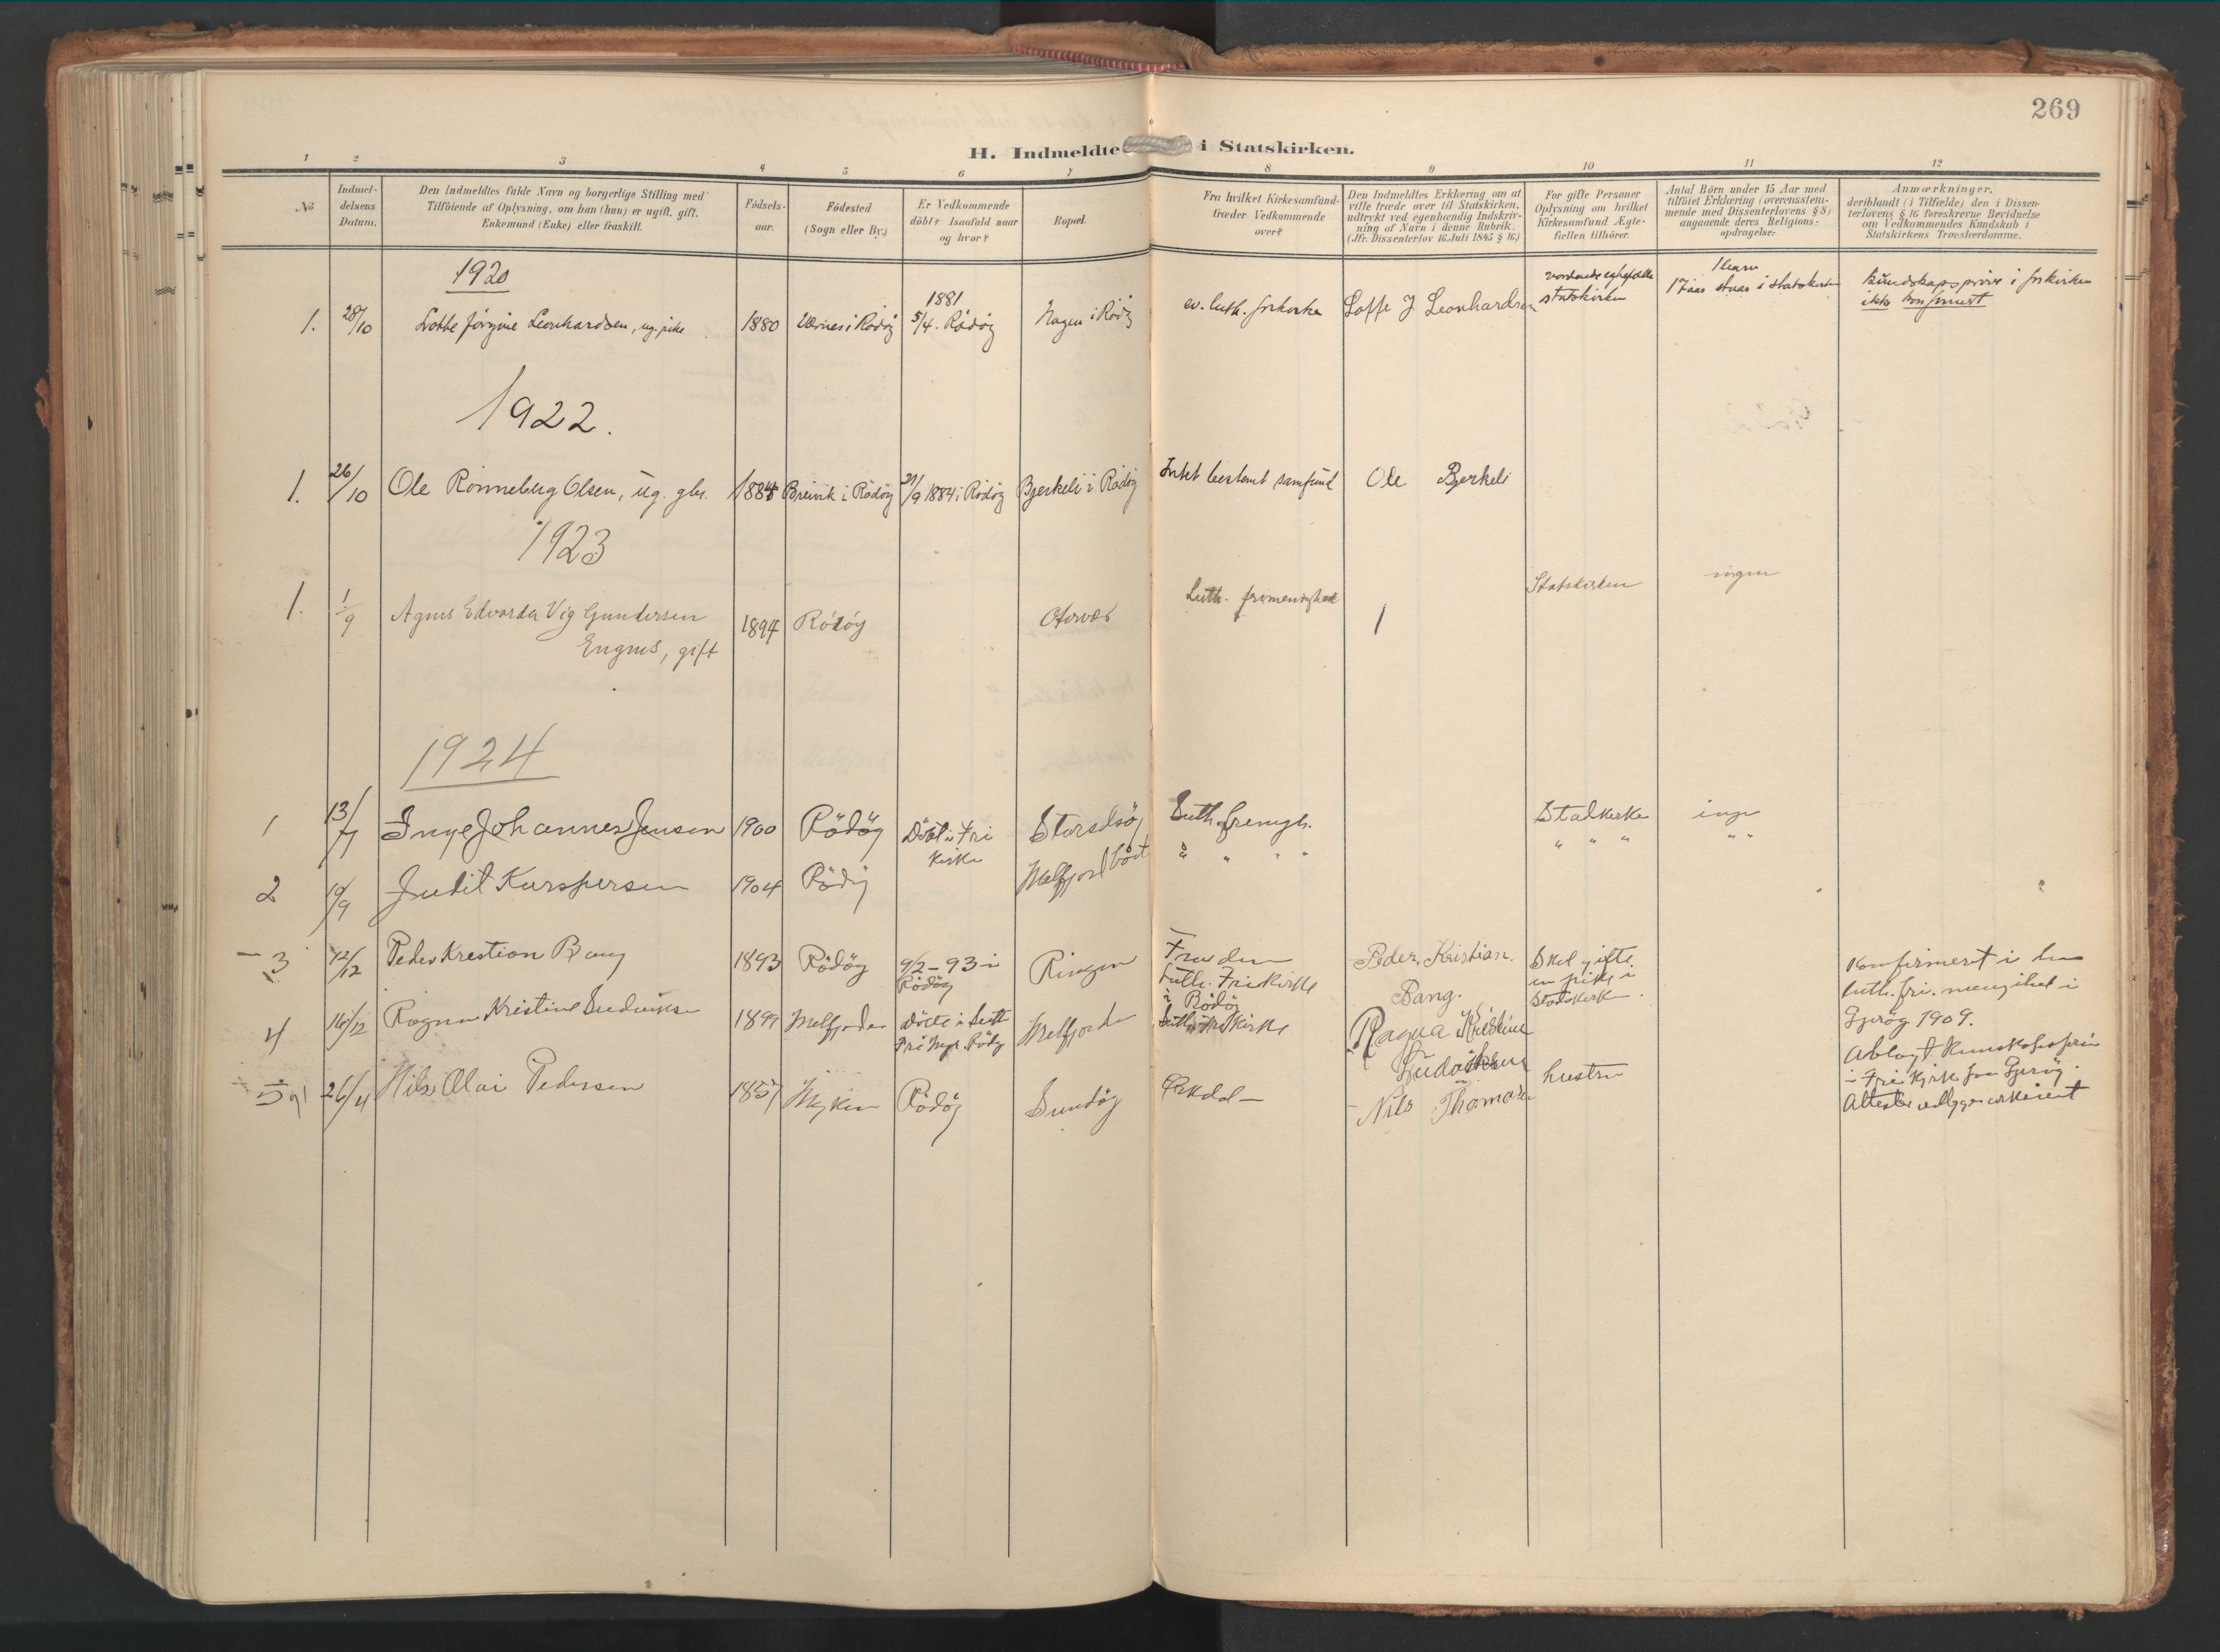 269
H. Indmeldte i Statskirken.
1 2 3 4 5 6 7 8 9 10 11 12
No
Indmel-
delsens
Datum.
Den Indmeldtes fulde Navn og borgerlige Stilling med
Tilföiende af Oplysning, om han (hun) er ugift, gift,
Enkemand (Enke) eller fraskilt.
Födsels-
aar.
Födested
(Sogn eller By.)
Er Vedkommende
döbt? Isaafald naar
og hvor?
Bopæl.
Fra hvilket Kirkesamfund
træder Vedkommende
over?
Den Indmeldtes Erklæring om at
ville træde over til Statskirken,
udtrykt ved egenhændig Indskriv-
ning af Navn i denne Rubrik.
(Jfr. Dissenterlov 16 Juli 1845 § 16.)
For gifte Personer
Oplysning om hvilket
Kirkesamfund Ægte-
fællen tilhörer.
Antal Börn under 15 Aar med
tilföiet Erklæring (overensstem-
mende med Dissenterlovens § 8)
angaaende deres Religions-
opdragelse.
Anmærkninger,
deriblandt (i Tilfælde) den i Dissen-
terlovens § 16 foreskrevne Bevidnelse
om Vedkommendes Kundskab i
Statskirkens Troeslærdomme.
1920
1. 28/10 Lotte Jörgine Leonhardsen, ug. pike 1880 Værnes i Rödöy 1881 5/4. Rödöy Hagen i Rödöy ev. luth. frikirke Loffe J Leonhardsen
vordende egtefælle
statskirken
1 barn
17 aar staar i statskirken
kundskapsprøve i frikirken
ikke konfirmert
1922.
1. 26/10 Ole Rönneberg Olsen, ug. gbr. 1884 Breivik i Rödöy 21/9 1884 i Rödöy Bjerkeli i Rödöy Intet bestemt samfund Ole Bjerkeli
1923
1. 1/9 Agnes Edvarda Vig Gundersen
Engnes, gift
1894 Rödöy Luth. frimenighed Statskirken ingen
1924
1 13/7 Inge Johannes Jensen 1900 Rödöy Döbt i Fri
kirke
Storselsöy Luth. frimgh. Statskirke inge
2 10/9 Judit Kaspersen 1904 Rödöy Melfjordbott " " " " " " " " "
3 12/12 Peder Kristian Bang 1893 Rödöy 9/2-93 i
Rödöy
Ringen
Fra den
Luth. Frikirke
i Rödöy
Peder Kristian.
Bang.
Skal gifte
en pike i
Statskirk.
Konfirmert i den
luth. fri. menighet i
Gjeröy 1909.
4 16/12 Ragna Kristine Ludviksen 1899 Melfjorden Döbt i Luth
Fri Mgh. Rödöy
Melfjorden Luth. Frikirke
Ragna Kristine
Ludviksen
Avlagt Kunskapsprøve
i Frikirke paa Gjeröy.
5 26/4 Nils Olai Pedersen 1857 Myken Rödöy Sundöy Nils Thomas hustru
Attester vedlegges arkivet